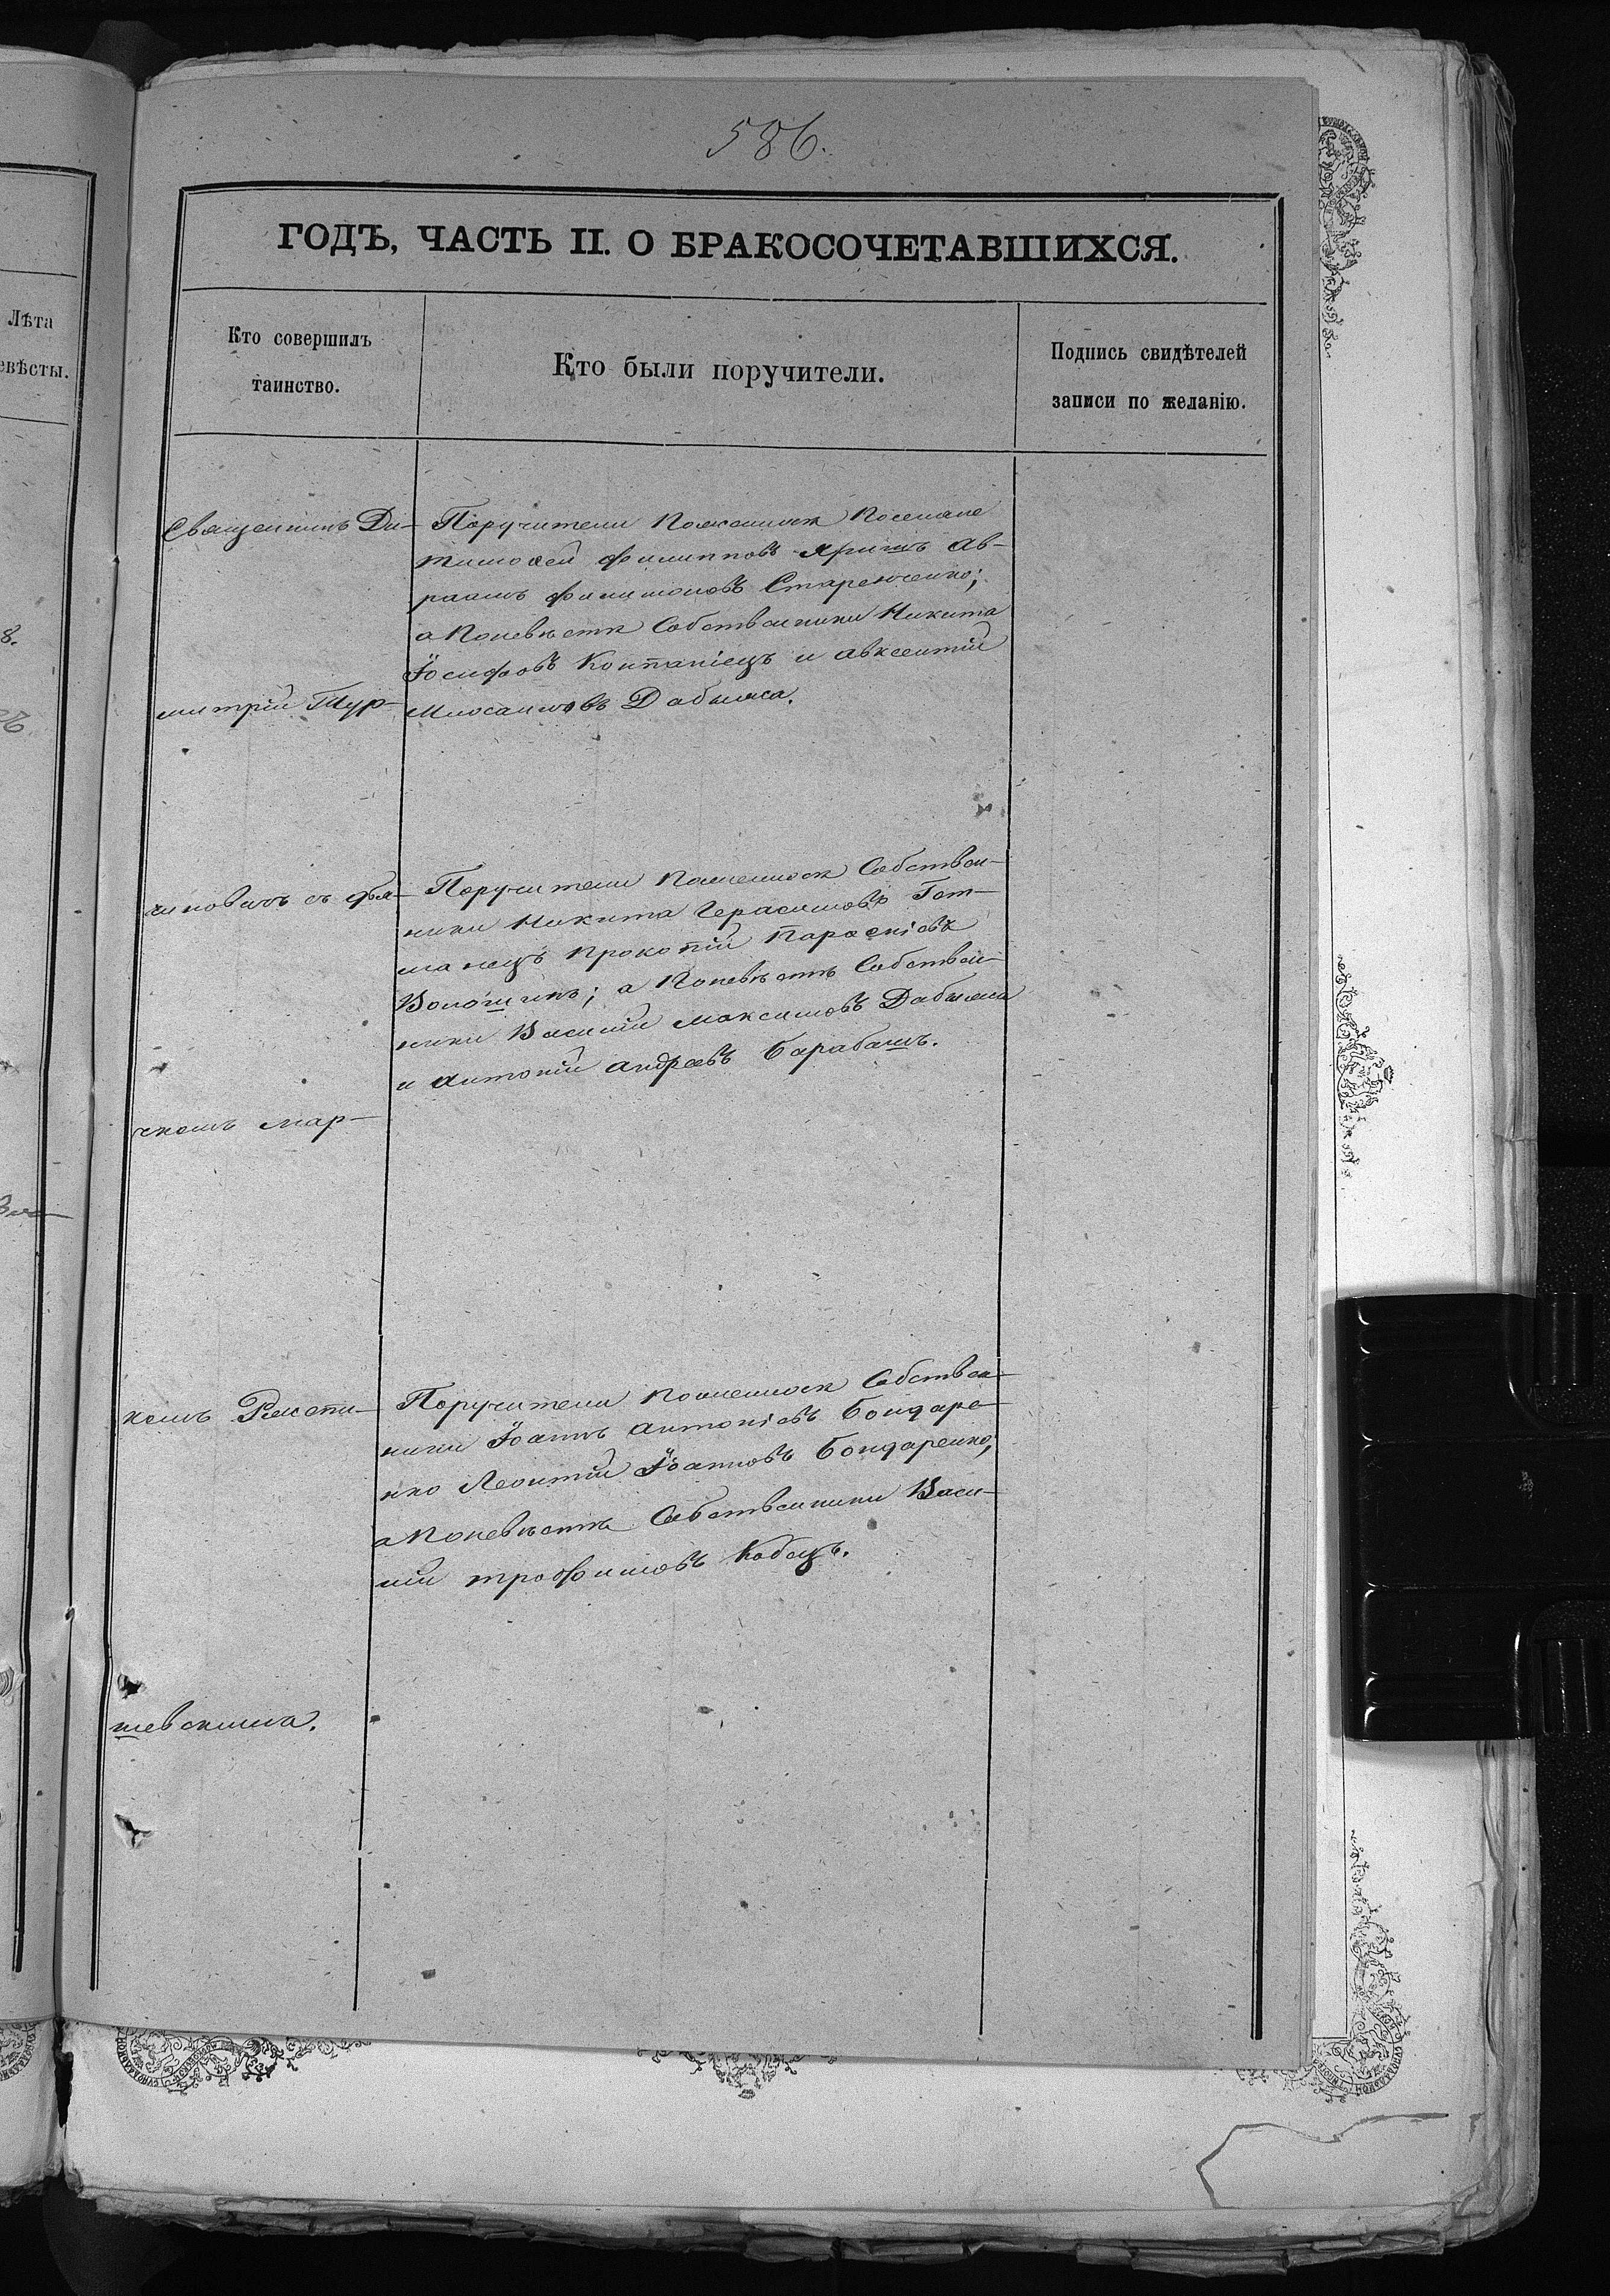 586.
ГОДЪ, ЧАСТЬ II. О БРАКОСОЧЕТАВШИХСЯ.
Лѣта
евѣсты.
Кто совершилъ
таинство.
Кто были поручители.
Подпись свидѣтелей
записи по желанію.
Священникъ Ди-
митрій Тур-
чиновичъ съ дья-
чкомъ Мар-
комъ
шевскимъ.
Поручители Поженихѣ Поселяне
Тимофей Филипповъ Яришъ Ав-
раамъ Филимоновъ Старенченко;
а Поневѣстѣ Собственники Никита
Іосифовъ Контаніецъ и Авксентій
Дабижа.
Поручители Поженихѣ Собствен-
ники Никита Герасимовъ Гет-
манецъ Прокопій
Волошинъ; а Поневѣстѣ Собствен-
ники Василій Максимовъ Дабижа
и Антоній Андреевъ Барабашъ.
Поручители Поженихѣ Собствен-
ники Іоаннъ Антоніевъ Бондаре-
нко Леонтій Іоанновъ Бондаренко,
а Поневѣстѣ Собственники Васи-
лій Трофимовъ Кобецъ.